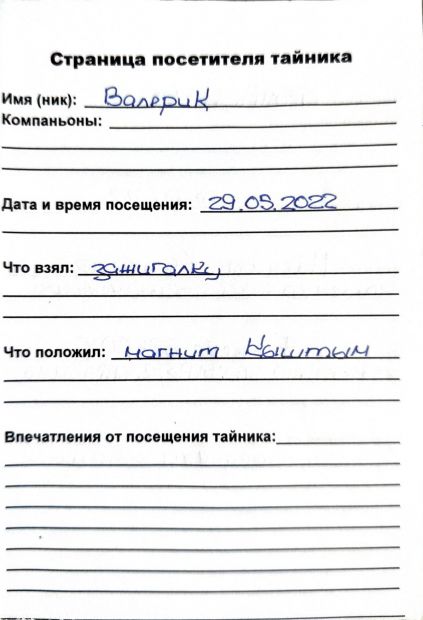 Страница посетителя тайника
Имя (ник): Валерик
Компаньоны:
Дата и время посещения: 29.05.2022
Что взял: зажигалку
Что положил: магнит Кыштым
Впечатления от посещения тайника: